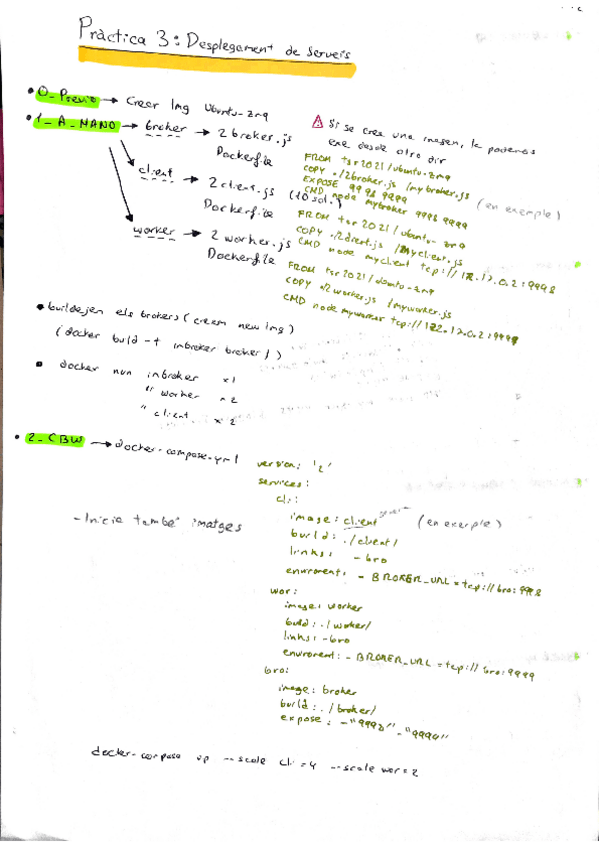 Pràctica 3: Desplegament de serveis
• 0_Previo → Crear Img Ubuntu-zmq
• 1_A_MANO → broker → 2 broker.js
Dockerfile
client → 2 client.js (10 sol.)
Dockerfile
worker → 2 worker.js
Dockerfile
⚠ Si se crea una imagen, la podemos
exe desde otro dir
FROM tsr2021/ubuntu-zmq
COPY ./2broker.js /mybroker.js
EXPOSE 9998 9999 (en exemple)
CMD node mybroker 9998 9999
FROM tsr2021/ubuntu-zmq
COPY ./2client.js /myclient.js
CMD node myclient tcp://172.17.0.2:9998
FROM tsr2021/ubuntu-zmq
COPY ./2worker.js /myworker.js
CMD node myworker tcp://172.17.0.2:9999
• buildejen els brokers (creem new Img)
(docker build -t imbroker broker/)
• docker run imbroker x1
" worker x2
" client x2
• 2_CBW → docker-compose.yml
- Inicie també imatges
version: '2'
services:
cli:
image: client (en exemple)
build: ./client/
links: - bro
enviroment: - BROKER_URL=tcp://bro:9998
wor:
image: worker
build: ./worker/
links: - bro
enviroment: - BROKER_URL=tcp://bro:9999
bro:
image: broker
build: ./broker/
expose: - "9998" - "9999"
docker-compose up --scale cli=4 --scale wor=2